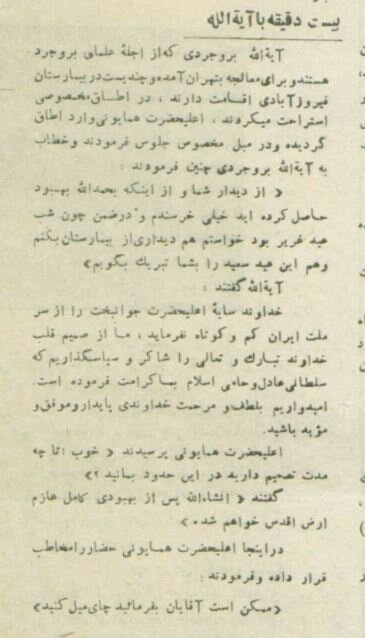 بیست دقیقه با آیة الله
آیةالله بروجردی که از اجلهٔ علمای بروجرد
هستند و برای معالجه بتهران آمده و چندیست در بیمارستان
فیروزآبادی اقامت دارند ، در اطاق مخصوصی
استراحت میکردند ، اعلیحضرت همایونی وارد اطاق
گردیده و در مبل مخصوص جلوس فرمودند و خطاب
به آیةالله بروجردی چنین فرمودند :
« از دیدار شما و از اینکه بحمدالله بهبود
حاصل کرده اید خیلی خرسندم و درضمن چون شب
عید غریر بود خواستم هم دیداری از بیمارستان بکنم
وهم این عید سعید را بشما تبریك بگویم»
آیةالله گفتند :
خداوند سایهٔ اعلیحضرت جوانبخت را از سر
ملت ایران کم و کوتاه نفرماید ، ما از صمیم قلب
خداوند تبارك و تعالی را شاکر و سپاسگذاریم که
سلطانی عادل و حامی اسلام بما کرامت فرموده است.
امیدواریم بلطف و مرحمت خداوندی پایدار و موفق و
مؤید باشید.
اعلیحضرت همایونی پرسیدند « خوب ! تا چه
مدت تصمیم دارید در این حدود بمانید ؟»
گفتند « انشاءالله پس از بهبودی کامل عازم
ارض اقدس خواهم شد »
دراینجا اعلیحضرت همایونی حضار را مخاطب
قرار داده و فرمودند :
«ممکن است آقایان بفرمائید چای میل کنید»